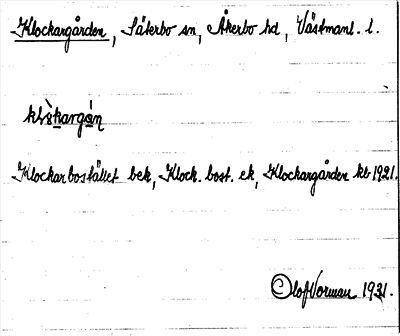 Klockargården, Säterbo sn, Åkerbo hd, Västmanl. l.
klòkargán
Klockarbostället bek, Klock. bost. ek, Klockargården kb 1921.
Olof Vorman 1931.